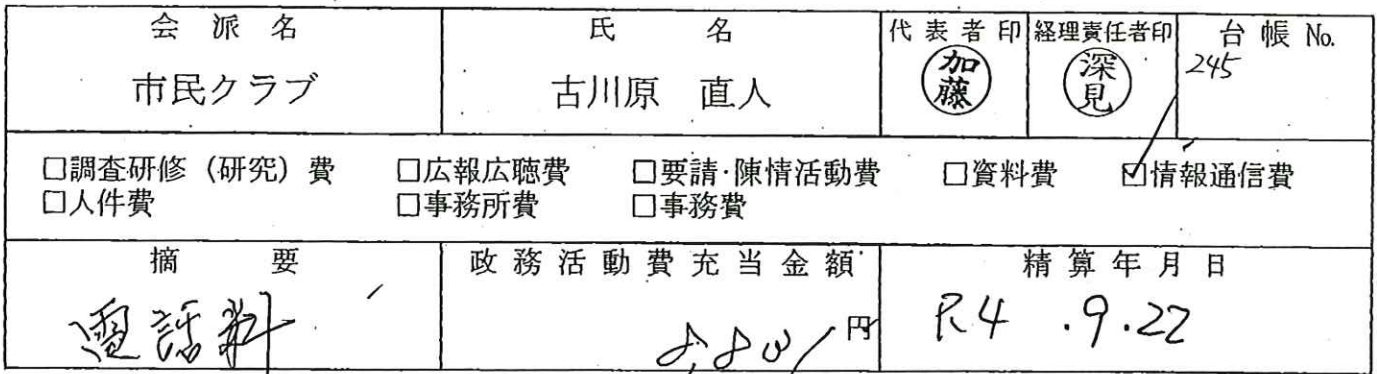 会派名 氏名 代表者印 経理責任者印 台帳No.
市民クラブ 古川原 直人 加藤 深見 245
□調査研修(研究)費 □広報広聴費 □要請・陳情活動費 □資料費 ☑情報通信費
□人件費 □事務所費 □事務費
摘要 政務活動費充当金額 精算年月日
電話料 円 R4.9.22